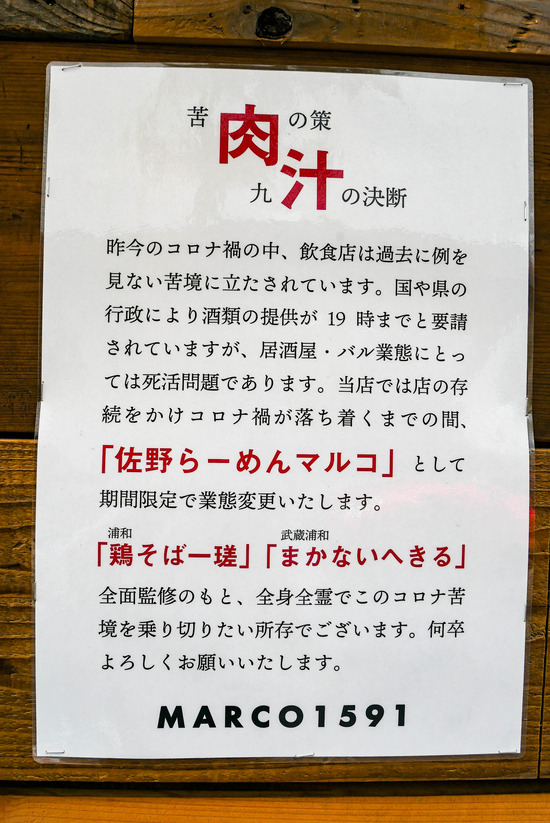 苦肉の策
九汁の決断
昨今のコロナ禍の中、飲食店は過去に例を
見ない苦境に立たされています。国や県の
行政により酒類の提供が 19 時までと要請
されていますが、居酒屋・バル業態にとっ
ては死活問題であります。当店では店の存
続をかけコロナ禍が落ち着くまでの間、
「佐野らーめんマルコ」として
期間限定で業態変更いたします。
浦和 武蔵浦和
「鶏そば一瑳」「まかないへきる」
全面監修のもと、全身全霊でこのコロナ苦
境を乗り切りたい所存でございます。何卒
よろしくお願いいたします。
MARCO1591